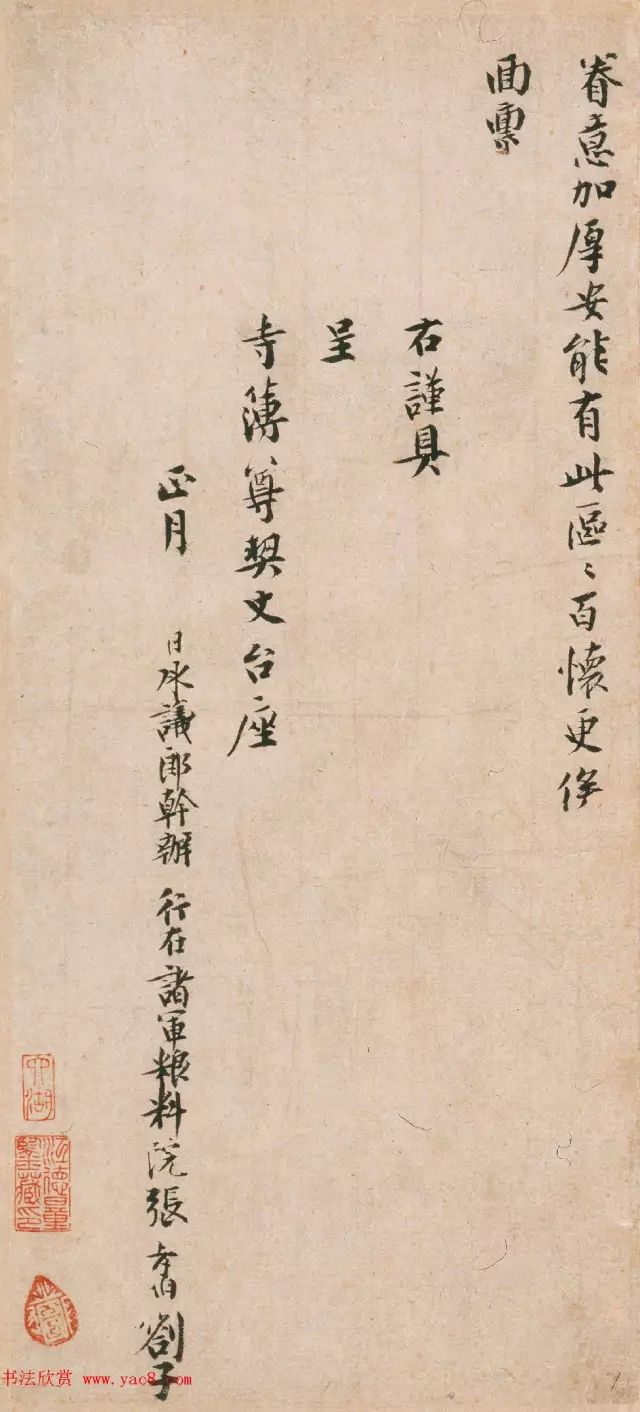 眷意加厚安能有此區〻百懷更俟
面稟
右謹具
呈
寺簿尊契丈台座
正月 日承議郎幹辦 行在諸軍粮料院張孝伯劄子
江德量鑒藏印
书法欣赏 www.yac8.com